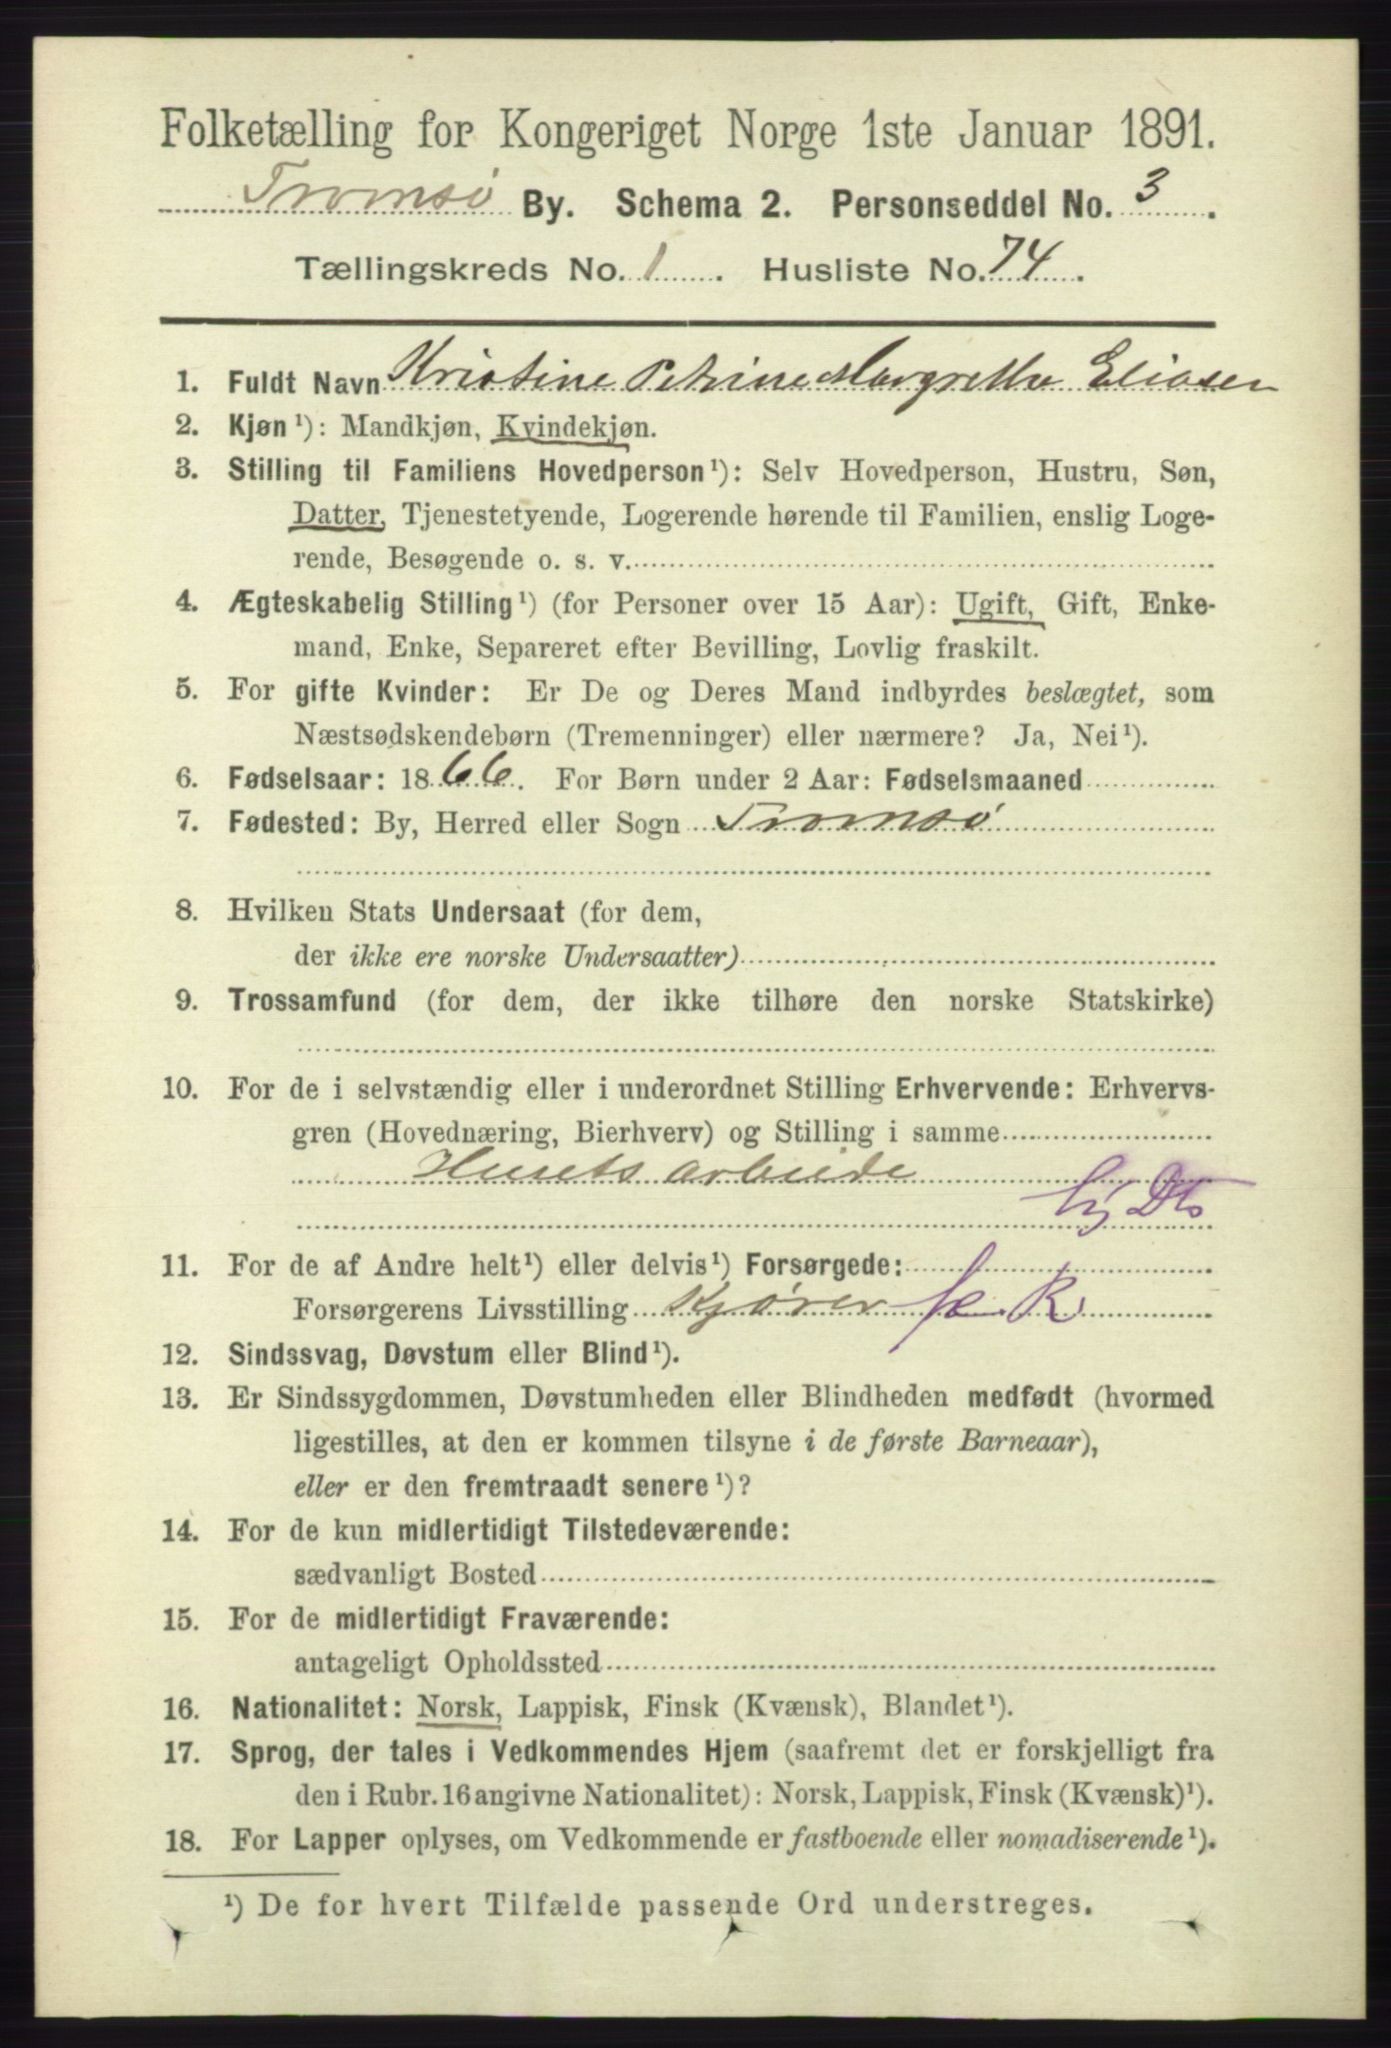 Folketælling for Kongeriget Norge 1ste Januar 1891.
Tromsø By. Schema 2. Personseddel No. 3.
Tællingskreds No. 1. Husliste No. 74.
1. Fuldt Navn Kristine Petrine Margrethe Eliasen
2. Kjøn ¹): Mandkjøn, Kvindekjøn.
3. Stilling til Familiens Hovedperson ¹): Selv Hovedperson, Hustru, Søn,
Datter, Tjenestetyende, Logerende hørende til Familien, enslig Loge-
rende, Besøgende o. s. v.
4. Ægteskabelig Stilling ¹) (for Personer over 15 Aar): Ugift, Gift, Enke-
mand, Enke, Separeret efter Bevilling, Lovlig fraskilt.
5. For gifte Kvinder: Er De og Deres Mand indbyrdes beslægtet, som
Næstsødskendebørn (Tremenninger) eller nærmere? Ja, Nei ¹).
6. Fødselsaar: 1866. For Børn under 2 Aar: Fødselsmaaned
7. Fødested: By, Herred eller Sogn Tromsø
8. Hvilken Stats Undersaat (for dem,
der ikke ere norske Undersaatter)
9. Trossamfund (for dem, der ikke tilhøre den norske Statskirke)
10. For de i selvstændig eller i underordnet Stilling Erhvervende: Erhvervs-
gren (Hovednæring, Bierhverv) og Stilling i samme
Husets arbeide
11. For de af Andre helt ¹) eller delvis ¹) Forsørgede:
Forsørgerens Livsstilling Kjører
12. Sindssvag, Døvstum eller Blind ¹).
13. Er Sindssygdommen, Døvstumheden eller Blindheden medfødt (hvormed
ligestilles, at den er kommen tilsyne i de første Barneaar),
eller er den fremtraadt senere ¹)?
14. For de kun midlertidigt Tilstedeværende:
sædvanligt Bosted
15. For de midlertidigt Fraværende:
antageligt Opholdssted
16. Nationalitet: Norsk, Lappisk, Finsk (Kvænsk), Blandet ¹).
17. Sprog, der tales i Vedkommendes Hjem (saafremt det er forskjelligt fra
den i Rubr. 16 angivne Nationalitet): Norsk, Lappisk, Finsk (Kvænsk) ¹).
18. For Lapper oplyses, om Vedkommende er fastboende eller nomadiserende ¹).
¹) De for hvert Tilfælde passende Ord understreges.